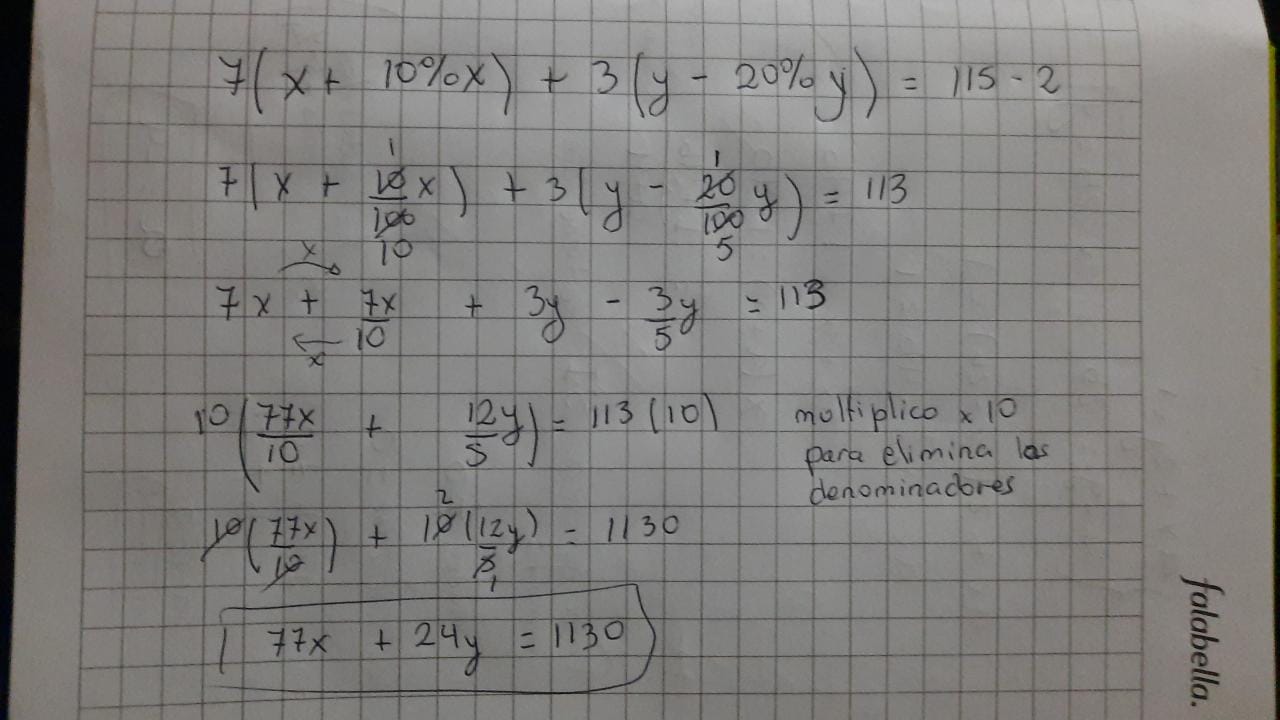 7(x + 10%x) + 3(y - 20%y) = 115 - 2
1 1
7(x + 10/100 x) + 3(y - 20/100 y) = 113
x 10 5
7x + 7x/10 + 3y - 3/5 y = 113
x
10(77x/10 + 12/5 y) = 113(10) multiplico x 10
para elimina los
denominadores
2
10(77x/10) + 10(12y/5) = 1130
1
77x + 24y = 1130
falabella.